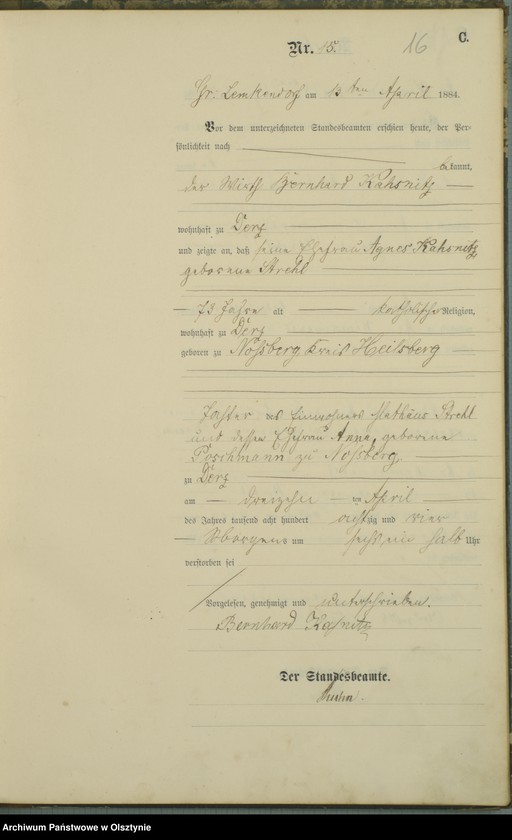 Nr. 15.
16
C.
Gr. Lemkendorf am 13ten April 1884.
Vor dem unterzeichneten Standesbeamten erschien heute, der Per-
sönlichkeit nach
bekannt,
der Wirth Bernhard Kahsnitz
wohnhaft zu Derz
und zeigte an, daß seine Ehefrau Agnes Kahsnitz,
geborene Strehl
73 Jahre alt katholischer Religion,
wohnhaft zu Derz
geboren zu Noßberg Kreis Heilsberg
Tochter des Einwohners Mathäus Strehl
und dessen Ehefrau Anna, geborene
Poschmann zu Noßberg,
zu Derz
am dreizehn ten April
des Jahres tausend acht hundert achtzig und vier
Morgens um sechs ein halb Uhr
verstorben sei
Vorgelesen, genehmigt und unterschrieben.
Bernhard Kaßnitz
Der Standesbeamte.
Archiwum Państwowe w Olsztynie